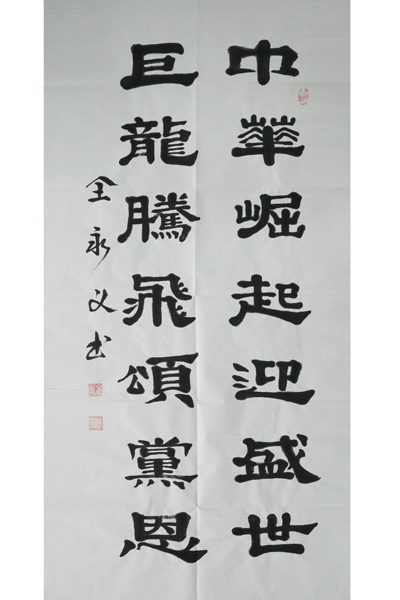 中華崛起迎盛世
巨龍騰飛頌黨恩
全永义书